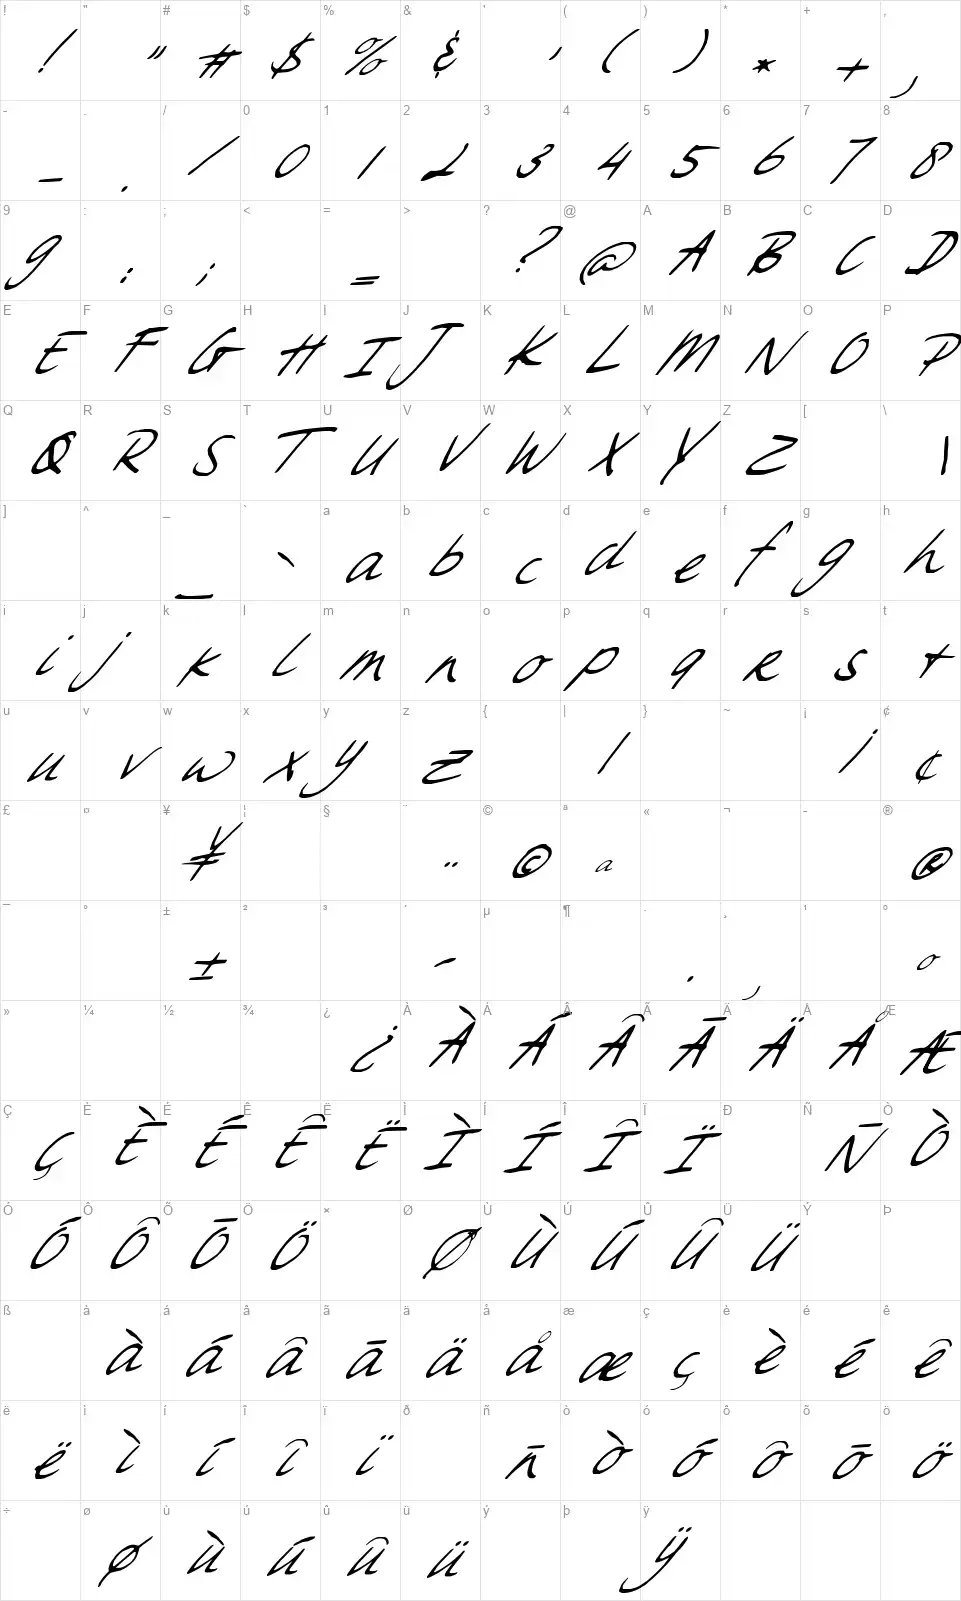 ! " # $ % & ' ( ) * + ,
! " # $ % & ' ( ) * + ,
- . / 0 1 2 3 4 5 6 7 8
- . / 0 1 2 3 4 5 6 7 8
9 : ; < = > ? @ A B C D
9 : ; = ? @ A B C D
E F G H I J K L M N O P
E F G H I J K L M N O P
Q R S T U V W X Y Z [ \
Q R S T U V W X Y Z \
] ^ _ ` a b c d e f g h
_ ` a b c d e f g h
i j k l m n o p q r s t
i j k l m n o p q r s t
u v w x y z { | } ~ ¡ ¢
u v w x y z | ¡ ¢
£ ¤ ¥ ¦ § ¨ © ª « ¬ - ®
¥ ¨ © ª ®
¯ ° ± ² ³ ´ µ ¶ · ¸ ¹ º
± ´ · ¸ º
» ¼ ½ ¾ ¿ À Á Â Ã Ä Å Æ
¿ À Á Â Ã Ä Å Æ
Ç È É Ê Ë Ì Í Î Ï Ð Ñ Ò
Ç È É Ê Ë Ì Í Î Ï Ñ Ò
Ó Ô Õ Ö × Ø Ù Ú Û Ü Ý Þ
Ó Ô Õ Ö Ø Ù Ú Û Ü
ß à á â ã ä å æ ç è é ê
à á â ã ä å æ ç è é ê
ë ì í î ï ð ñ ò ó ô õ ö
ë ì í î ï ñ ò ó ô õ ö
÷ ø ù ú û ü ý þ ÿ
ø ù ú û ü ÿ